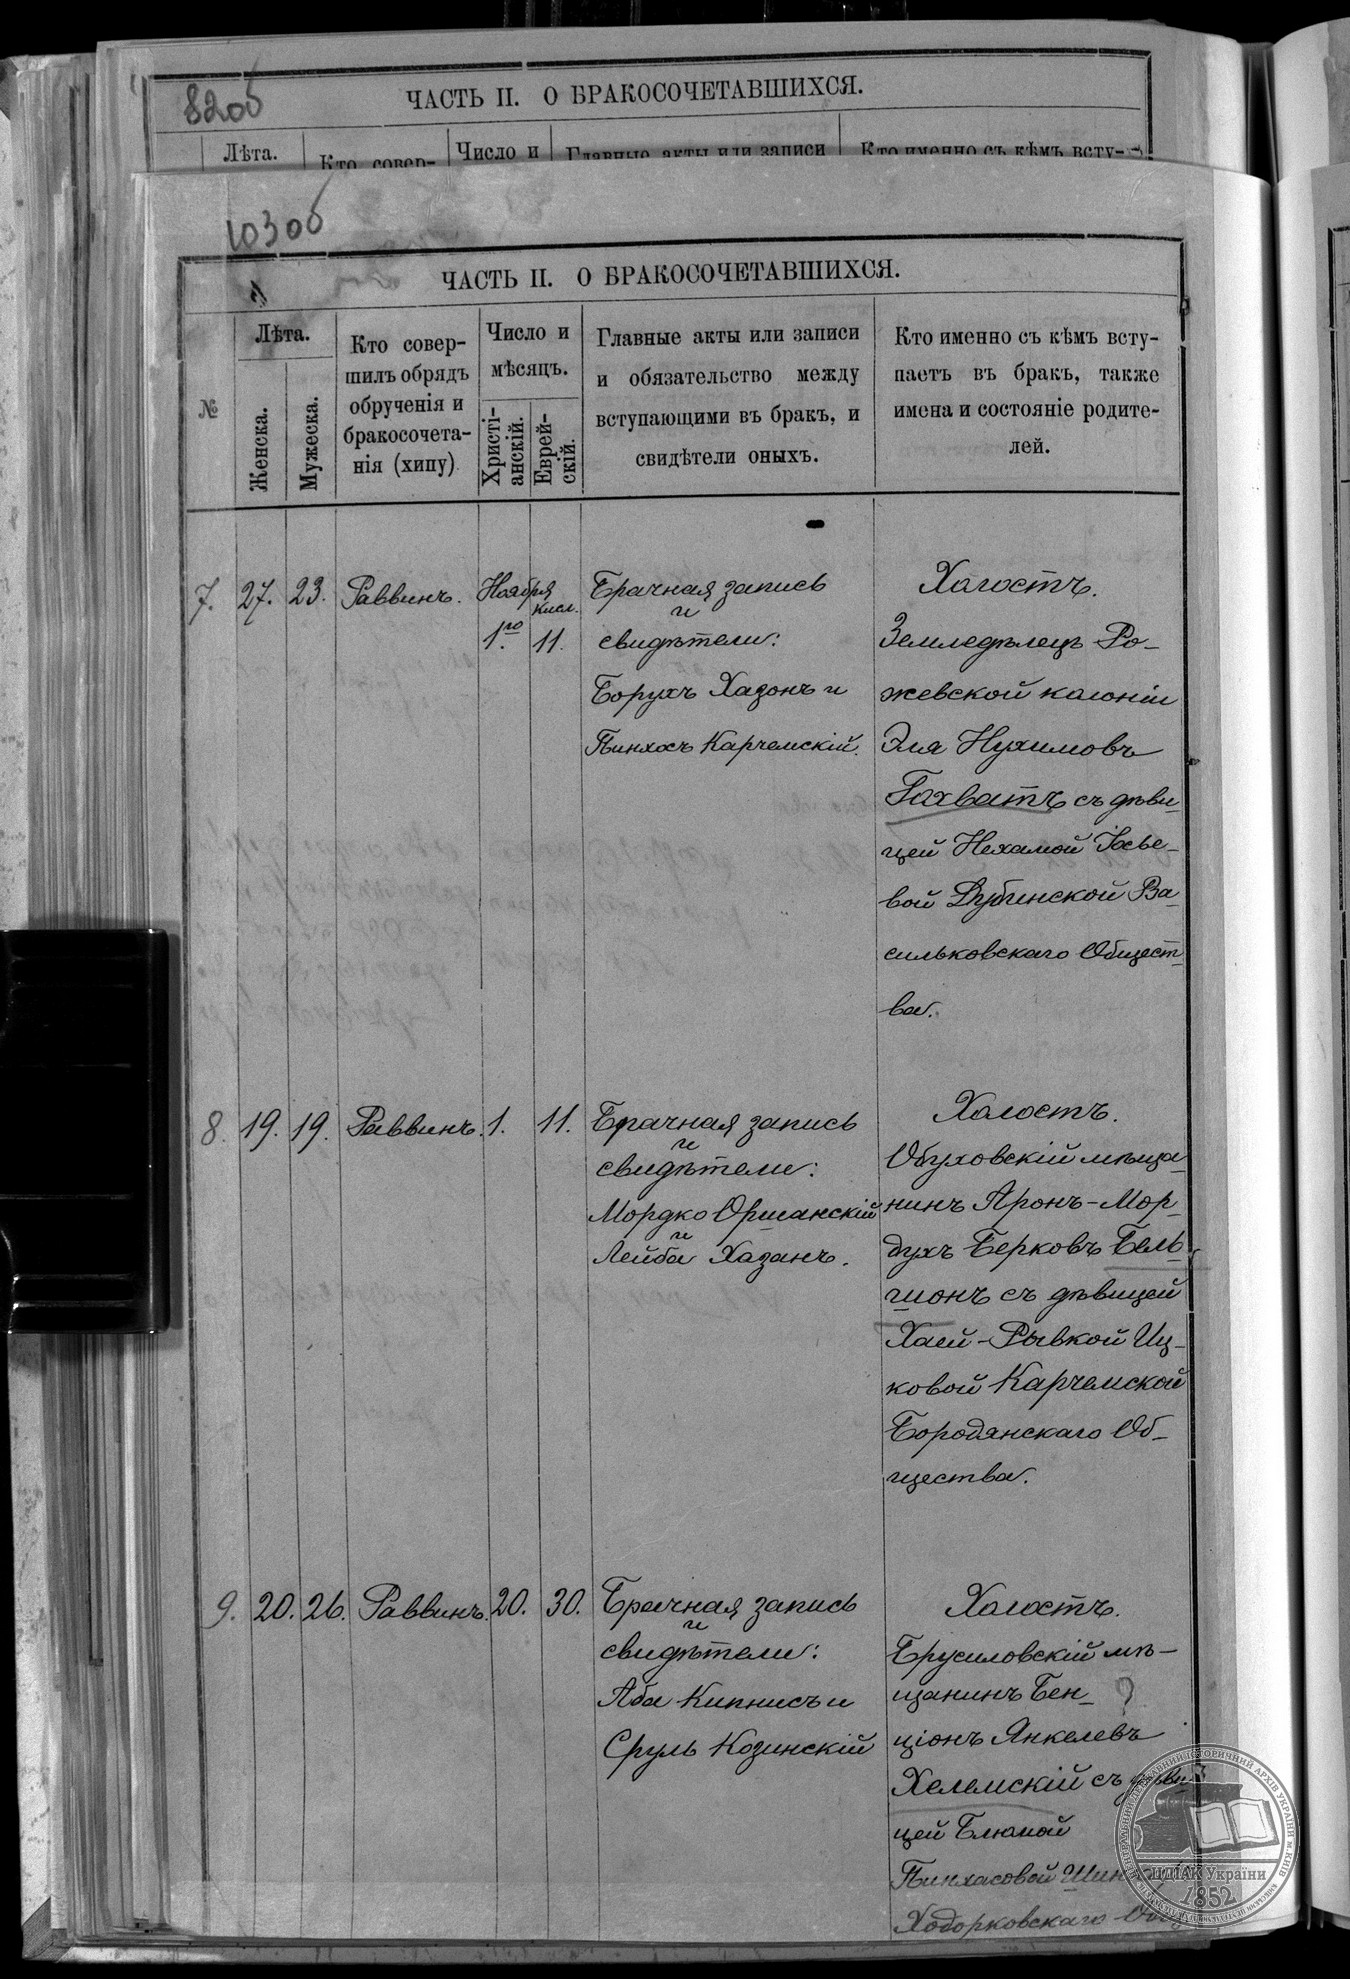 820б
ЧАСТЬ II. О БРАКОСОЧЕТАВШИХСЯ.
Лѣта.
Кто совер-
Число и
Главные акты или записи
Кто именно съ кѣмъ всту-
1030б
ЧАСТЬ II. О БРАКОСОЧЕТАВШИХСЯ.
№
Лѣта.
Женска.
Мужеска.
Кто совер-
шилъ обрядъ
обрученія и
бракосочета-
нія (хипу)
Число и
мѣсяцъ.
Христі-
анскій.
Еврей-
скій.
Главные акты или записи
и обязательство между
вступающими въ бракъ, и
свидѣтели оныхъ.
Кто именно съ кѣмъ всту-
паетъ въ бракъ, также
имена и состояніе родите-
лей.
7. 27. 23. Раввинъ.
Ноября
кисл.
1го 11.
Брачная запись
и
свидѣтели:
Борухъ Хазонъ и
Пинхосъ Карчемскій.
Холостъ.
Земледѣлецъ Ро-
жевской колоніи
Эля Нухимовъ
Гохватъ съ дѣви
цей Нехамой Іосье-
вой Дубинской Ва-
сильковскаго Общест-
ва.
8. 19. 19. Раввинъ. 1. 11.
Брачная запись
и
свидѣтели:
Мордко Оршанскій
и
Лейба Хазанъ.
Холостъ.
Обуховскій мѣща-
нинъ Аронъ-Мор-
духъ Берковъ Бель-
шонъ съ дѣвицей
Хаей-Рывкой Иц-
ковой Карчемской
Бородянскаго Об-
щества.
9. 20. 26. Раввинъ. 20. 30.
Брачная запись
и
свидѣтели:
Аба Кипнисъ и
Сруль Козинскій
Холостъ.
Брусиловскій мѣ-
щанинъ Бен- ?
ціонъ Янкелевъ
Хелемскій съ дѣви
цей Блюмой
Пинхасовой
Ходорковскаго
ЦДІАК України
1852